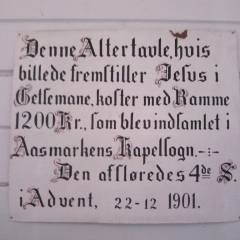 Denne Altertavle, hvis
billede fremstiller Jesus i
Getsemane, koster med Ramme
1200 Kr., som blev indsamlet i
Aasmarkens Kapelsogn. -:-
Den afsløredes 4de S.
i Advent, 22-12 1901.